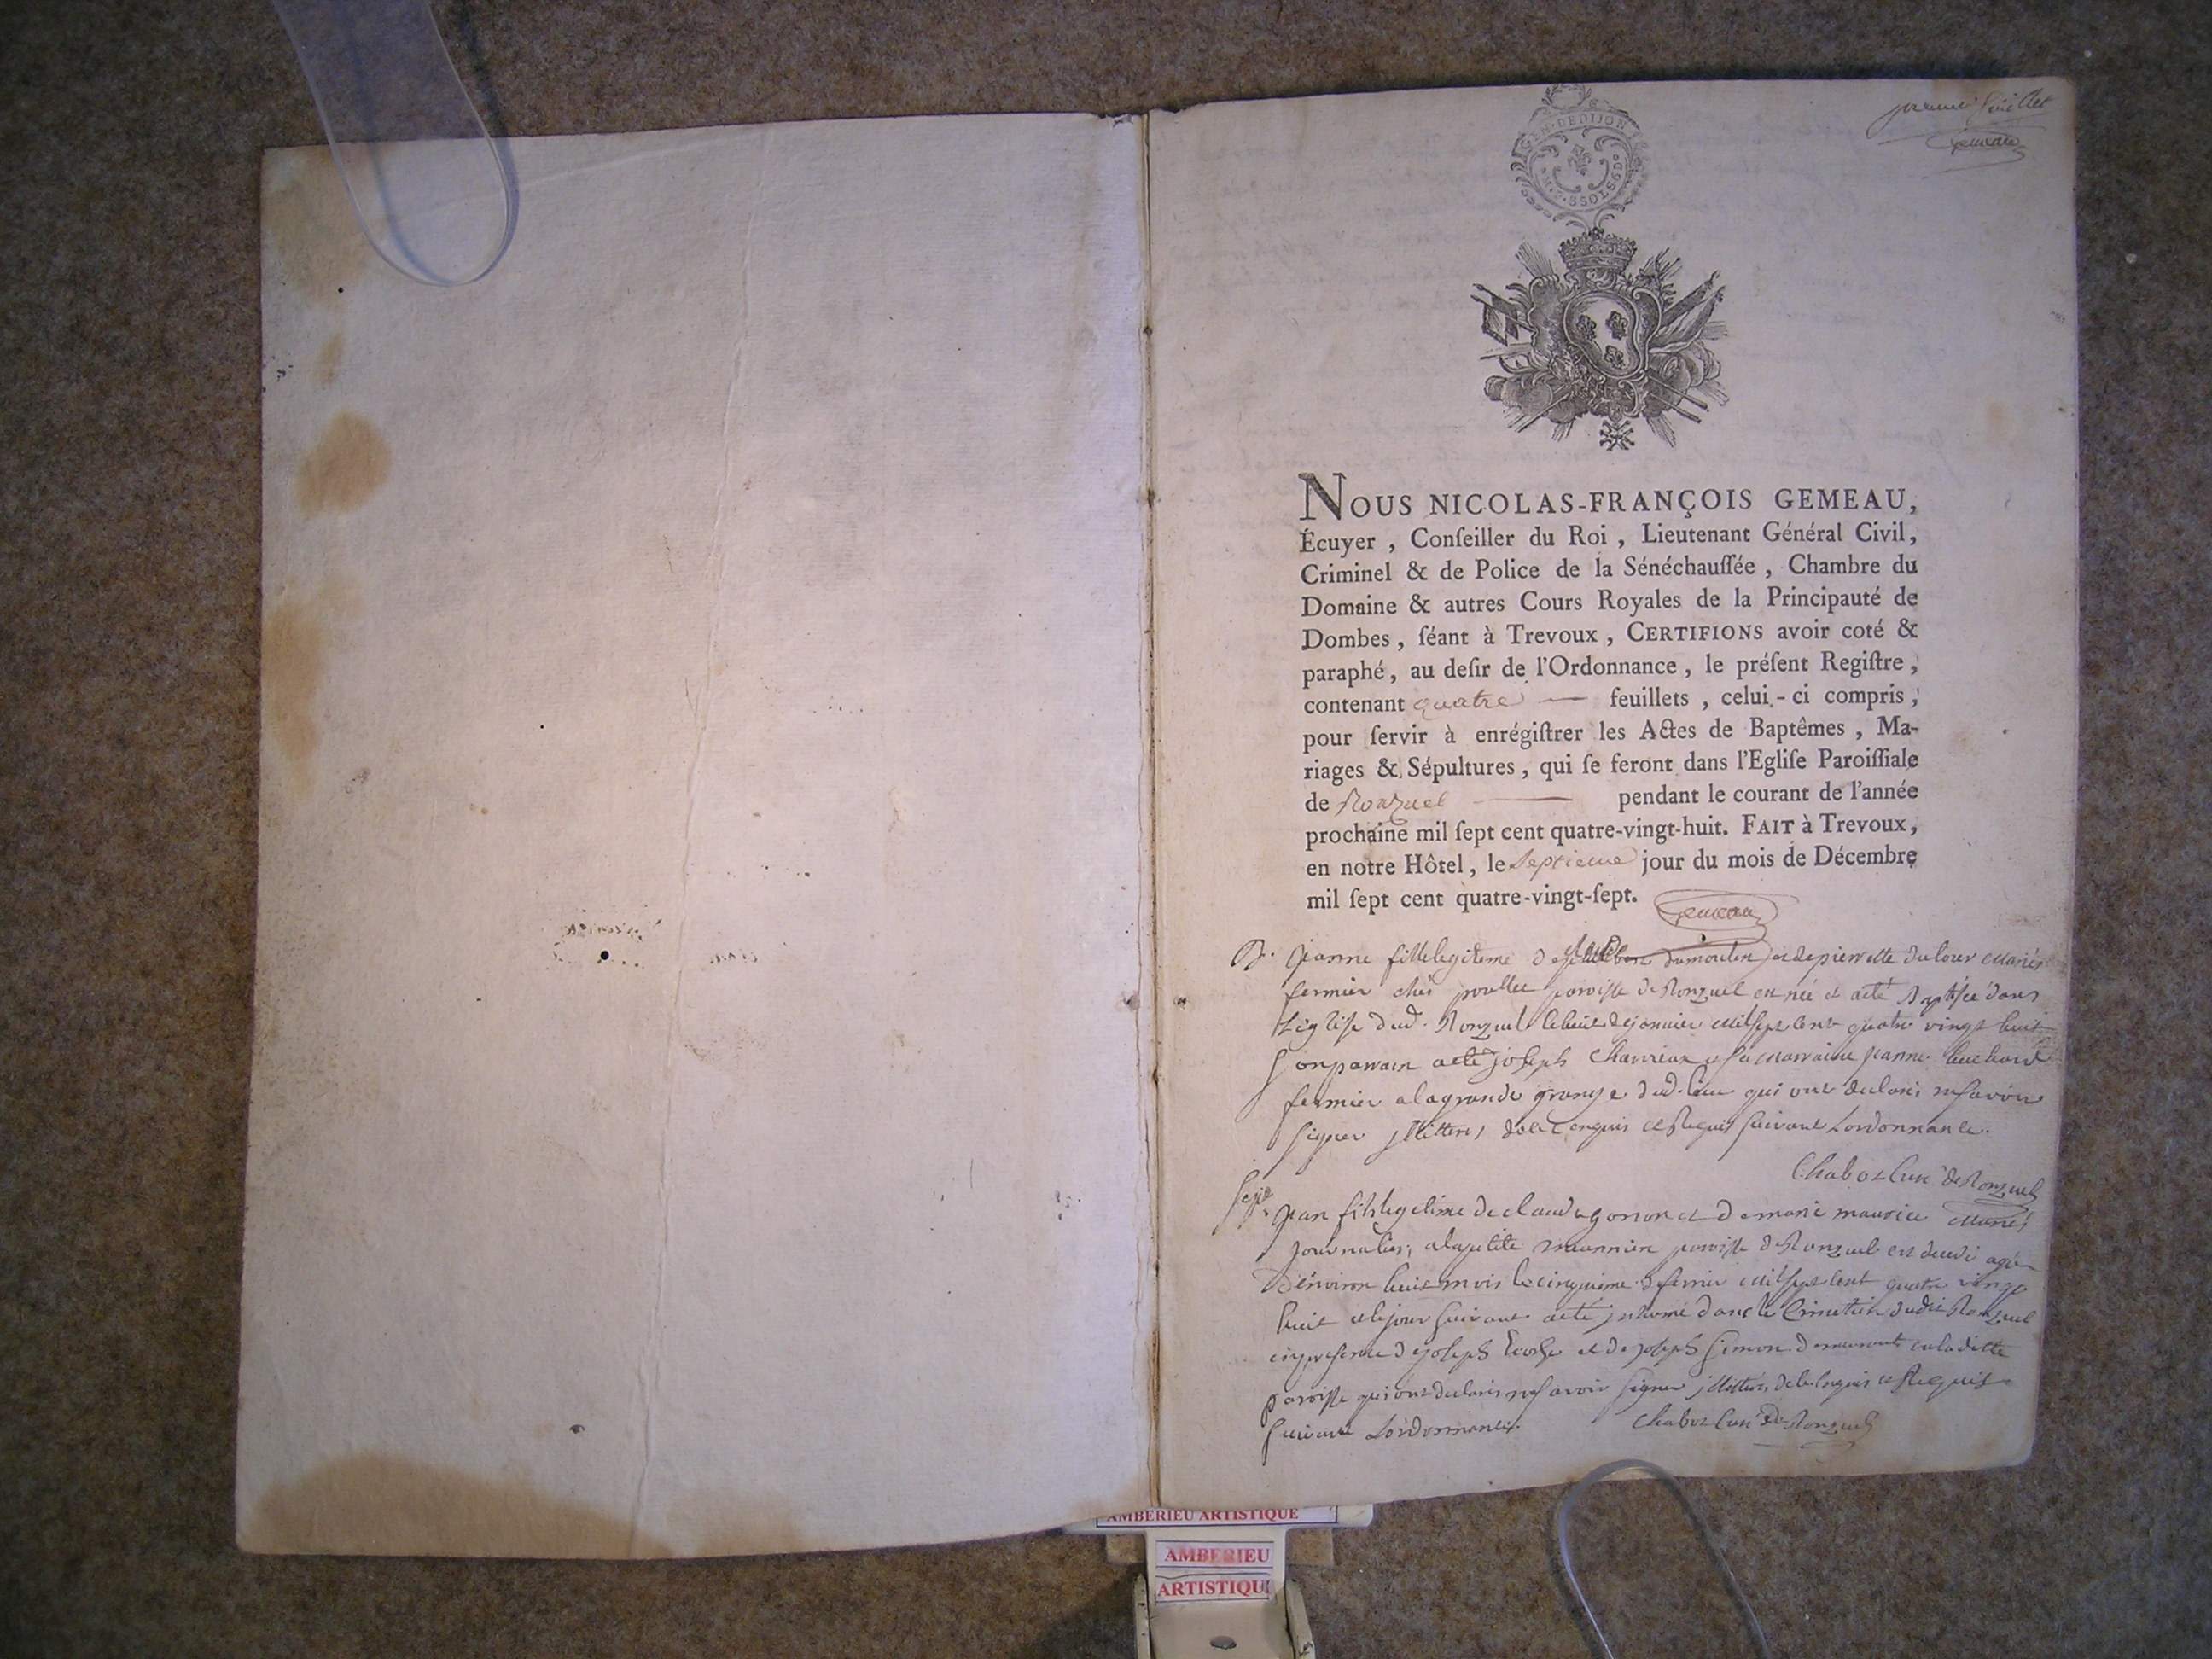 premier feuillet
Gemeau
GEN. DE DIJON
NOUS NICOLAS-FRANÇOIS GEMEAU,
Écuyer , Conſeiller du Roi , Lieutenant Général Civil,
Criminel & de Police de la Sénéchauſſée , Chambre du
Domaine & autres Cours Royales de la Principauté de
Dombes , ſéant à Trevoux , CERTIFIONS avoir coté &
paraphé, au deſir de l'Ordonnance , le préſent Regiſtre ,
contenant quatre feuillets , celui-ci compris ,
pour ſervir à enrégiſtrer les Actes de Baptêmes , Ma-
riages & Sépultures , qui ſe feront dans l'Egliſe Paroiſſiale
de Ronzuel pendant le courant de l'année
prochaine mil ſept cent quatre-vingt-huit. FAIT à Trevoux,
en notre Hôtel, le Septieme jour du mois de Décembre
mil ſept cent quatre-vingt-ſept.
Gemeau
B. Jeanne fille legitime de dumoulin et de pierrette dufour mariés
fermier paroisse de Ronzuel est née et a eté Baptisée dans
L'eglise dud. Ronzuel le huit de janvier mil sept cent quatre vingt huit
son parrain a eté joseph et sa marraine jeanne
fermier a la grande grange dud. lieu qui ont declaré ne savoir
signer de ce enquis et Requis suivant Lordonnance.
Chabot Curé de Ronzuel
Sepre
Jean fils legitime de claude gonon et de marie maurice mariés
journaliers a la petite paroisse de Ronzuel est decedé agé
d'environ huit mois le cinquieme de fevrier mil sept cent quatre vingt
huit et le jour suivant a eté inhumé dans le Cimetiere dudit Ronzuel
en presence de joseph et de joseph Simon demeurant en la ditte
paroisse qui ont declaré ne savoir signer de ce enquis et Requis
suivant Lordonnance. Chabot Curé de Ronzuel
AMBERIEU ARTISTIQUE
AMBERIEU
ARTISTIQUE